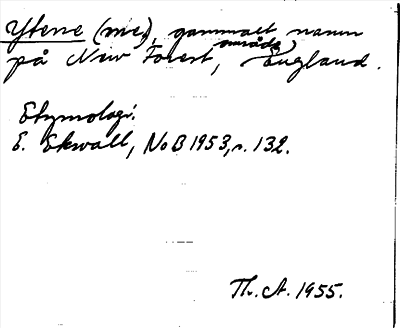 Ytene (me.), gammalt namn
på New Forest, område, England.
Etymologi:
E. Ekwall, NoB 1953, s. 132.
Th. A. 1955.